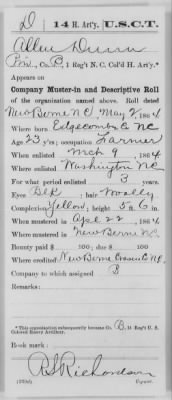 D | 14 H. Art'y. | U.S.C.T.
Allen Dunn
Priv., Co. B, 1 Reg't N. C. Col'd H. Art'y.*
Appears on
Company Muster-in and Descriptive Roll
of the organization named above. Roll dated
New Berne N.C. May 2, 1864
Where born Edgecombe Co NC
Age 23 y'rs; occupation Farmer
When enlisted Mch 9, 1864
Where enlisted Washington N.C.
For what period enlisted 3 years.
Eyes Blk; hair Woolly
Complexion Yellow; height 5 ft. 6 in.
When mustered in Apl 22, 1864
Where mustered in New Berne N.C.
Bounty paid $ 100; due $ 100
Where credited New Berne Craven Co N.C.
Company to which assigned B
Remarks:
*This organization subsequently became Co. B, 14 Reg't U. S.
Colored Heavy Artillery.
Book mark:
R S Richardson
Copyist.